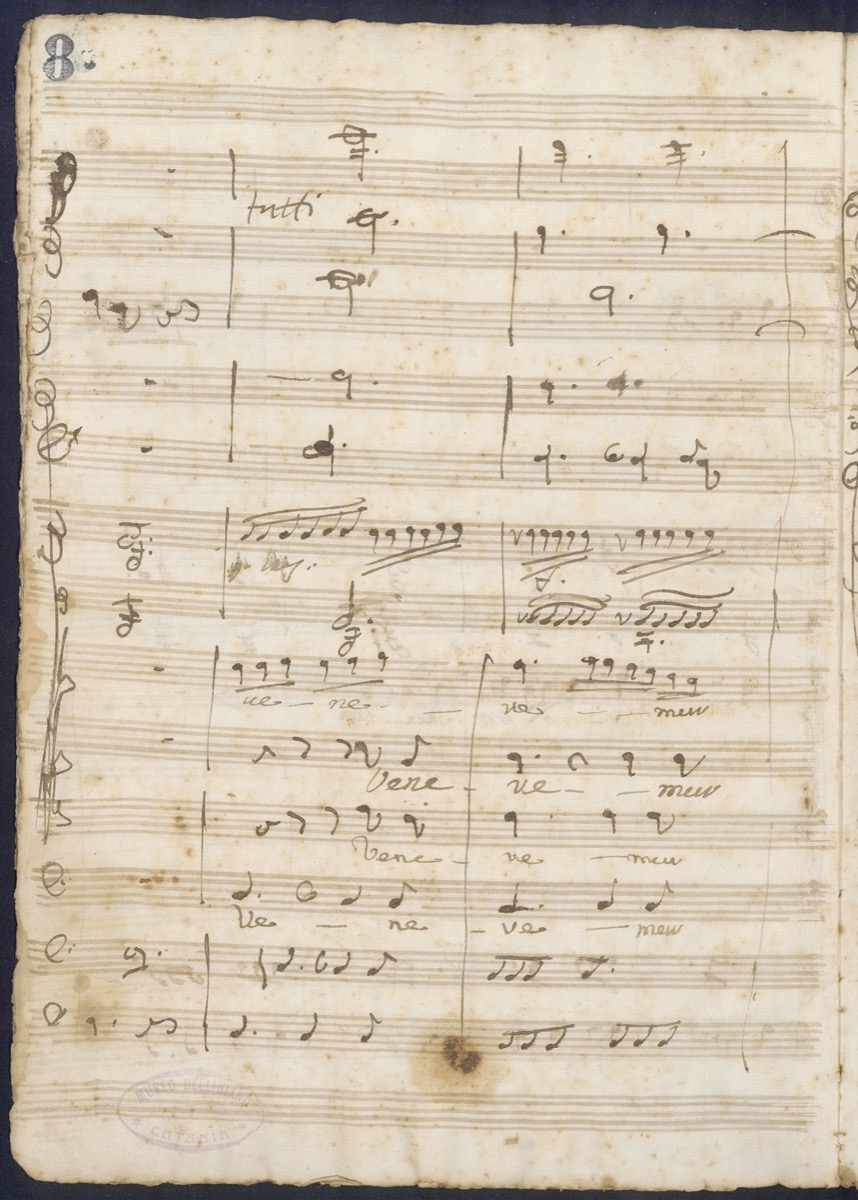 8
tutti
ve - ne - -
ve - - mur
Vene - ve - - mur
Vene - ve - mur
Ve - ne - ve - mur
MUSEO BELLINIANO
CATANIA